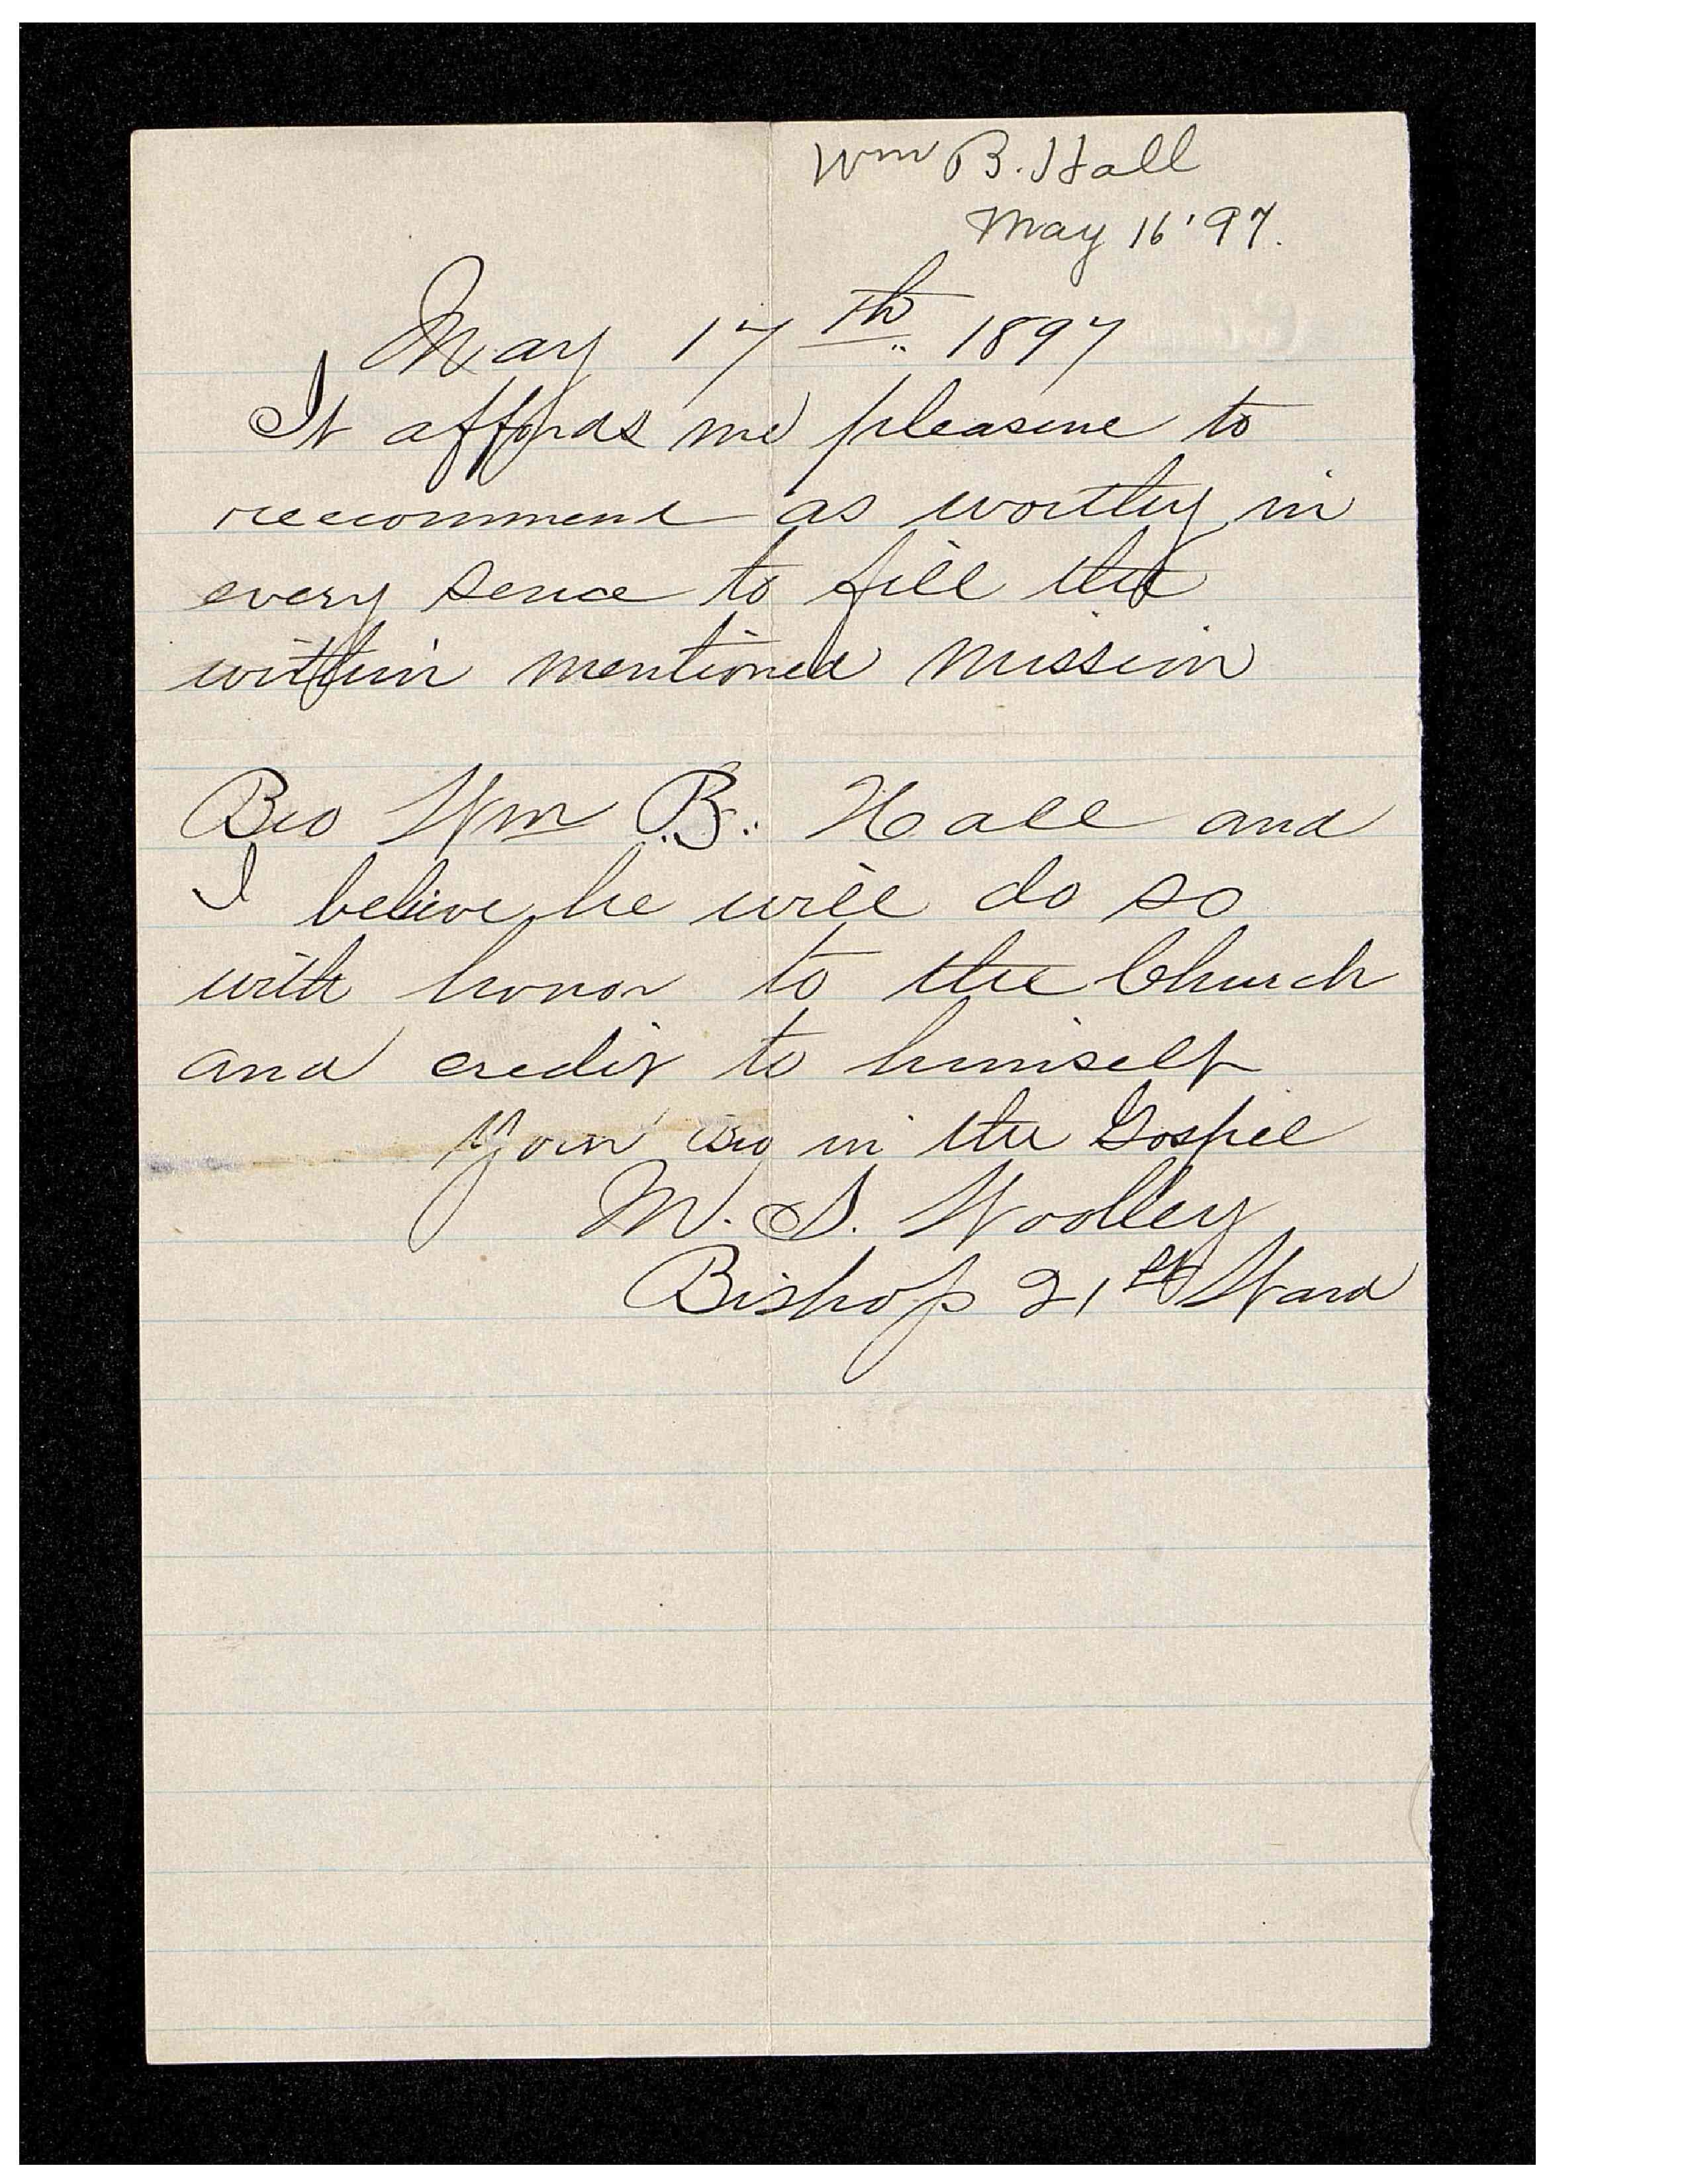 Wm B. Hall
May 16 '97.
May 17th 1897
It affords me pleasure to
reecommend as worthy in
every sence to fill the
within mentioned mission
Bro Wm B. Hall and
I believe he will do so
with honor to the Church
and credit to himself
Your Bro in the Gospel
M. S. Woolley
Bishop 21st Ward